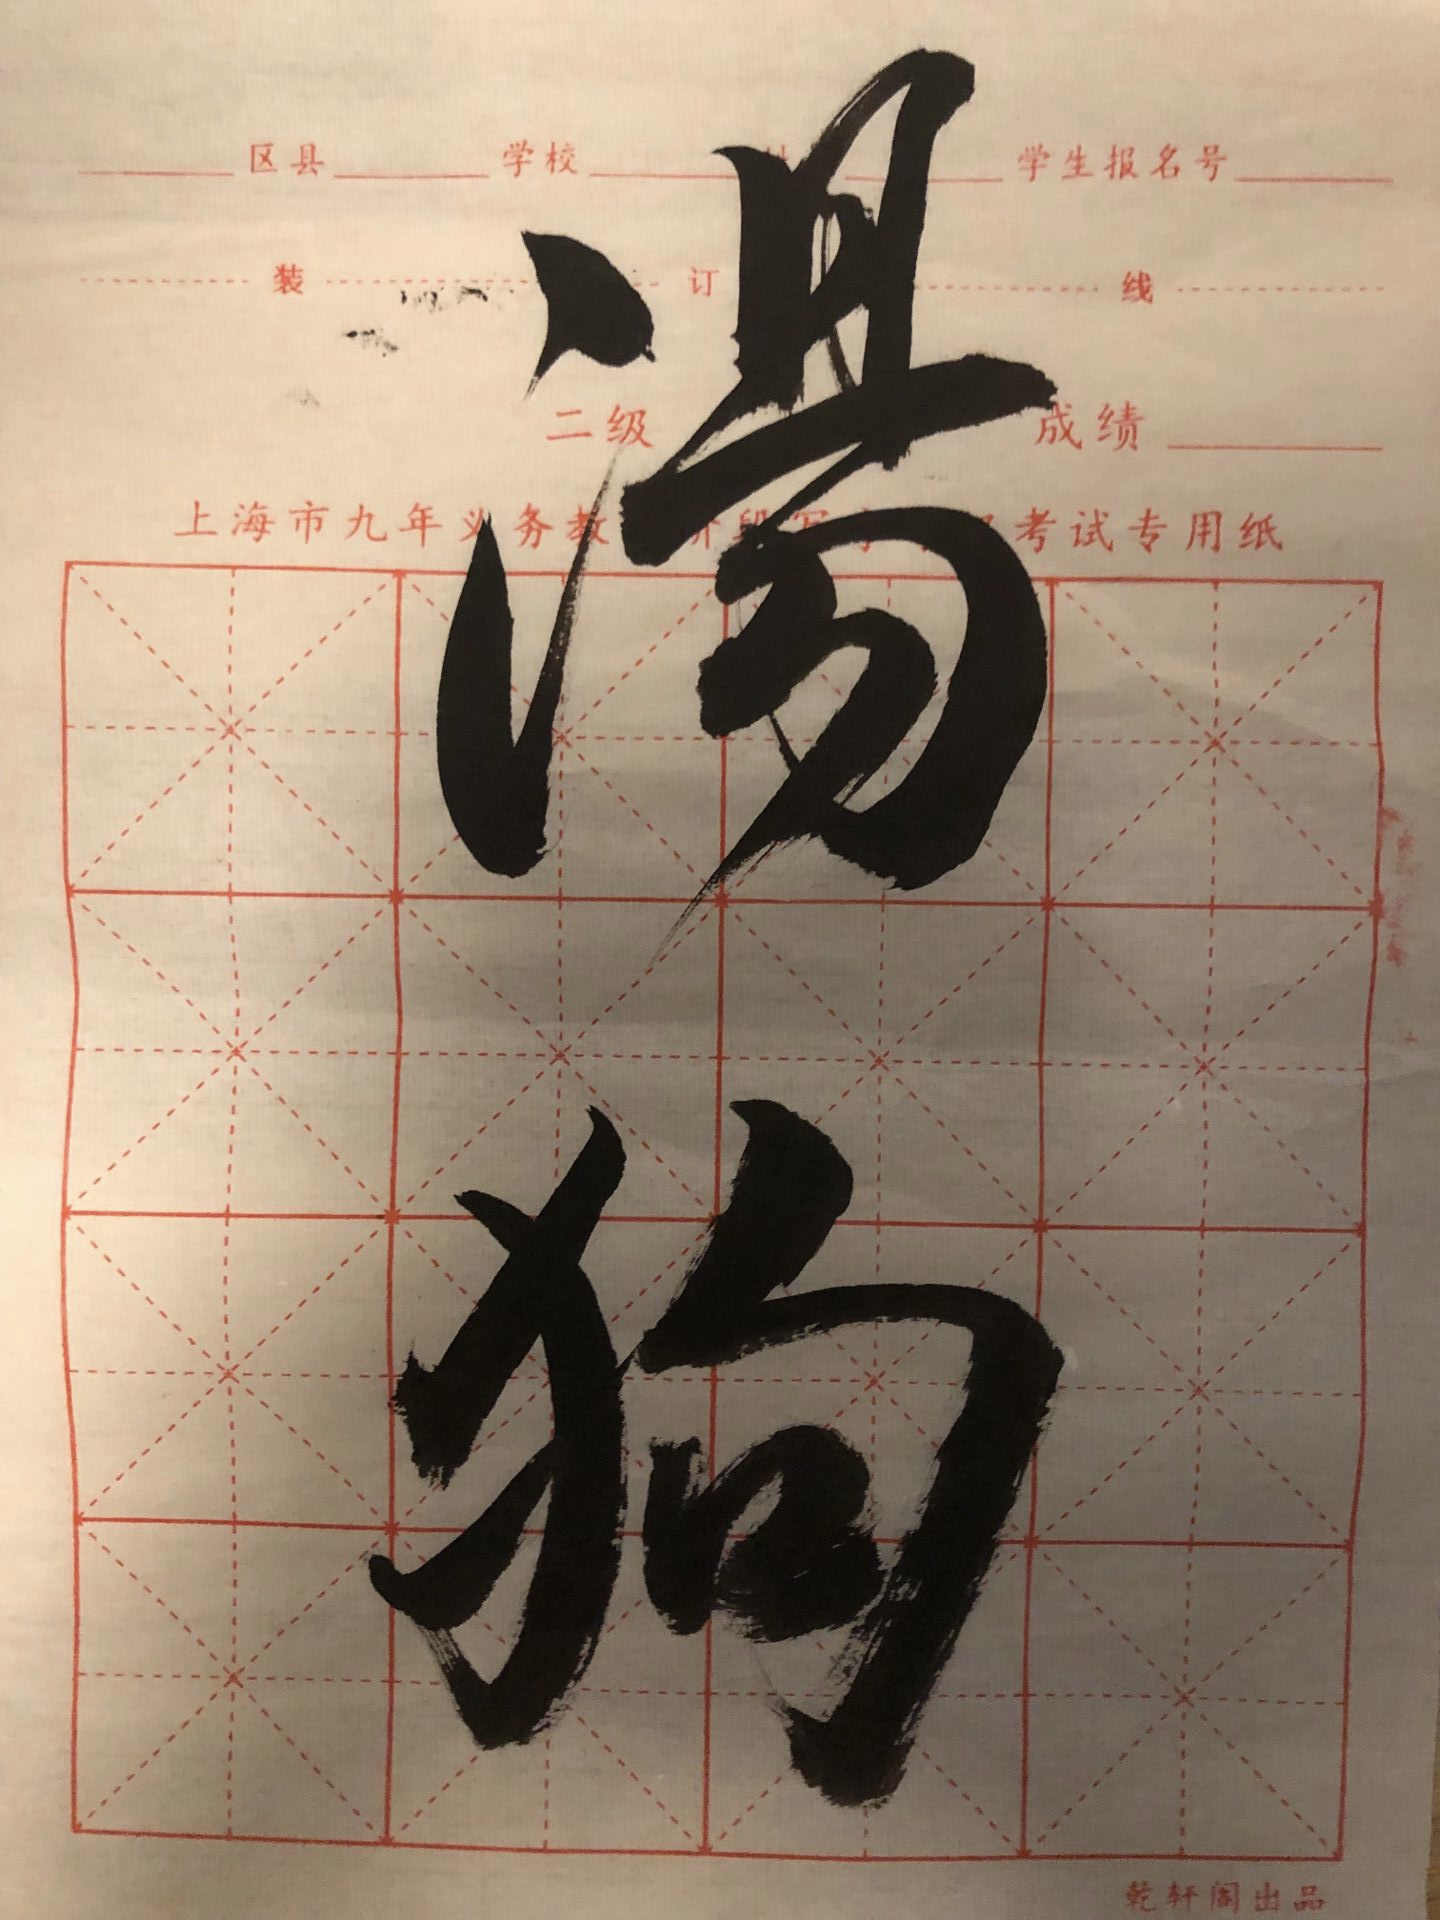 区县 学校 学生报名号
装 订 线
二级 成绩
上海市九年义务教 阶段写 考试专用纸
湯
狗
乾轩阁出品